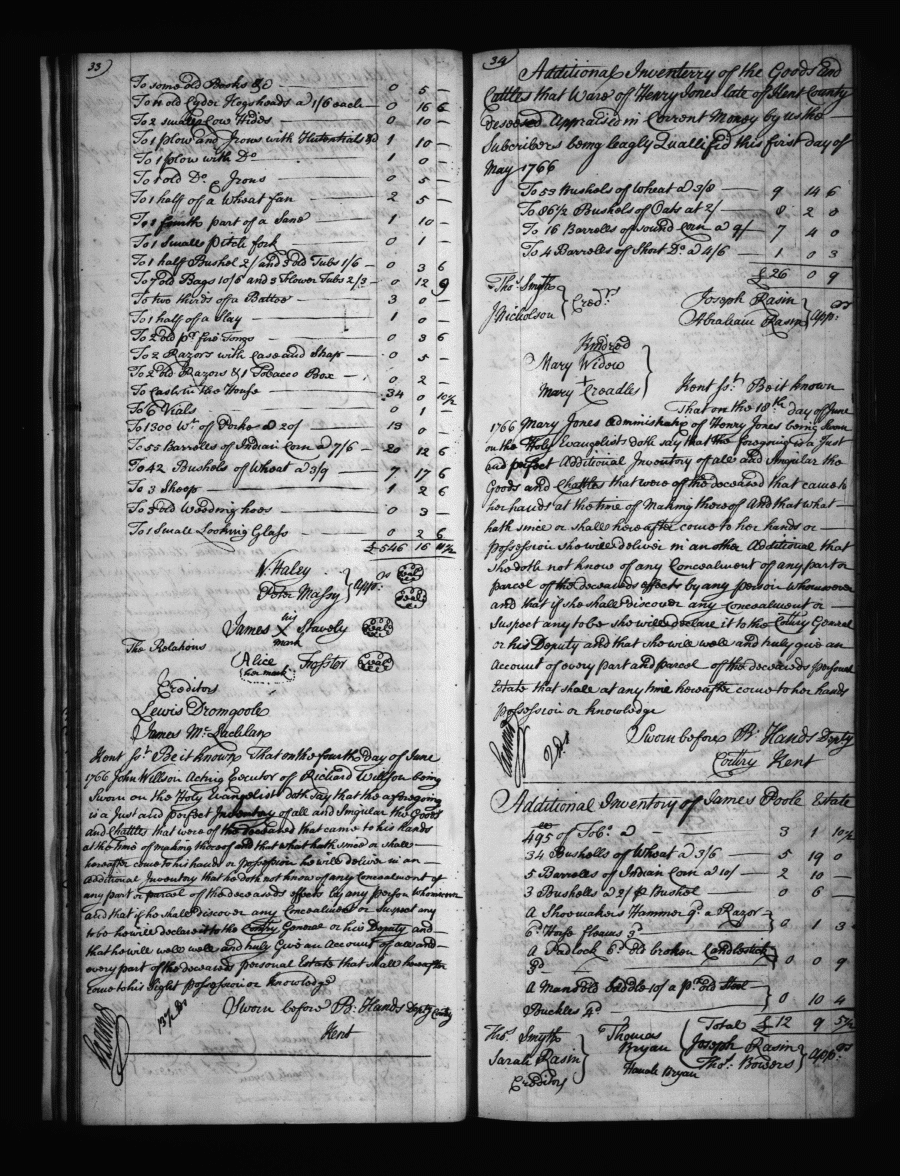 33)
To some old Books &c — 0 5 —
To 11 old Cyder Hogsheads a 1/6 each — 0 16 6
To 2 small Cow Hides — 0 10 —
To 1 plow and Irons with 1 — 1 10 —
To 1 plow with Do — 1 0 —
To 1 old Do Irons — 0 5 —
To 1 half of a Wheat fan — 2 5 —
To 1 fourth part of a Sane — 1 10 —
To 1 Smalle pitch fork — 0 1 —
To 1 half Bushel 2/ and 3 old Tubs 1/6 — 0 3 6
To 7 old Bags 10/6 and 3 Flower Tubs 2/3 — 0 12 9
To two thirds of a Battoe — 3 0 —
To 1 half of a Slay — 1 0 —
To 2 old pr fire Tongs — 0 3 6
To 2 Razors with Case and Strap — 0 5 —
To 2 old Razors & 1 Tobacco Box — 0 2 —
To Cash in the House — 34 0 10½
To 6 Vials — 0 1 —
To 1300 Wt of Porke a 20/ — 13 0 —
To 55 Barroles of Indian Corn a 7/6 — 20 12 6
To 42 Bushels of Wheat a 3/9 — 7 17 6
To 3 Sheep — 1 2 6
To 3 old Weeding hoes — 0 3 —
To 1 Small Looking Glass — 0 2 6
£546 16 11½
W. Haley
Peter Massy } Apprs Seal Seal
James his X mark Stavely Seal
The Relations
Alice her mark Froster Seal
Creditors
Lewis Dromgoole
James McLachlan
Kent sst Be it known That on the fourth Day of June
1766 John Willson Acting Executor of Richard Willson being
Sworn on the Holy Evangelist doth say that the aforegoing
is a Just and perfect Inventory of all and Singular the Goods
and Chattles that were of the deceased that came to his hands
at the time of making thereof and that what hath since or shall
hereafter come to his hands or possession he will deliver in an
Additional Inventory that he doth not know of any Concealment of
any part or parcel of the deceaseds effects by any person whomsoever
and that if he shall Discover any Concealment or Suspect any
to be he will declare it to the Comtry General or his Deputy and
that he will well and truly Give an Account of all and
every part of the deceaseds personal Estate that shall hereafter
come to his Sight possession or knowledge
Sworn before B: Hands Depty Comtry
Kent
34)
Additional Inventerry of the Goods and
Cattles that Ware of Henry Jones late of Kent County
deseced Appraised in Corrent Money by us the
Subcribers being leagly Quallifid this first day of
May 1766
To 53 Bushels of Wheat a 3/8 — 9 14 6
To 86½ Bushels of Oats at 2/ — 8 2 0
To 16 Barroles of sound Corn a 9/ — 7 4 0
To 4 Barroles of Short Do a 4/6 — 1 0 3
£26 0 9
Thos Smyth
J Nicholson } Credrs
Joseph Rasin
Abraham Rasin } Apprs
Kindred
Mary Widow
Mary + Croadles }
Kent sst Be it known
That on the 18th day of June
1766 Mary Jones Administrix of Henry Jones being Sworn
on the Holy Evangelists doth say that the foregoing is a Just
and perfect Additional Inventory of all and Singular the
Goods and Chattles that were of the deceased that came to
her hands at the time of Making thereof And that what
hath since or shall hereafter come to her hands or
possession she will deliver in another Additional that
she doth not know of any Concealment of any part or
parcel of the deceaseds effects by any person whomsoever
and that if she shall Discover any Concealment or
Suspect any to be she will declare it to the Comtry General
or his Deputy and that she will well and truly give an
Account of every part and parcel of the deceaseds personal
Estate that shall at any time hereafter come to her hands
possession or knowledge
Sworn before B: Hands Depty
Comtry Kent
Additional Inventory of James Poole Estate
495 ll of Tobo a — 3 1 10½
34 Bushells of Wheat a 3/6 — 5 19 0
5 Barroles of Indian Corn a 10/ — 2 10 —
3 Bushells a 2/ p Bushel — 0 6 —
A Shoemakers Hammer 9d a Razor
6d Horse fleams 9d } 0 1 3
A Padlock 6d old broken Candlestick
3d } 0 0 9
A Mans old Saddle 10/ a pr old Steel
Buckles 4d } 0 10 4
Total £12 9 5½
Thos Smyth
Sarah Rasin }
Creditors
Thomas
Bryan
Hannah Bryan
Joseph Rasin
Thos: Bowers } Apprs